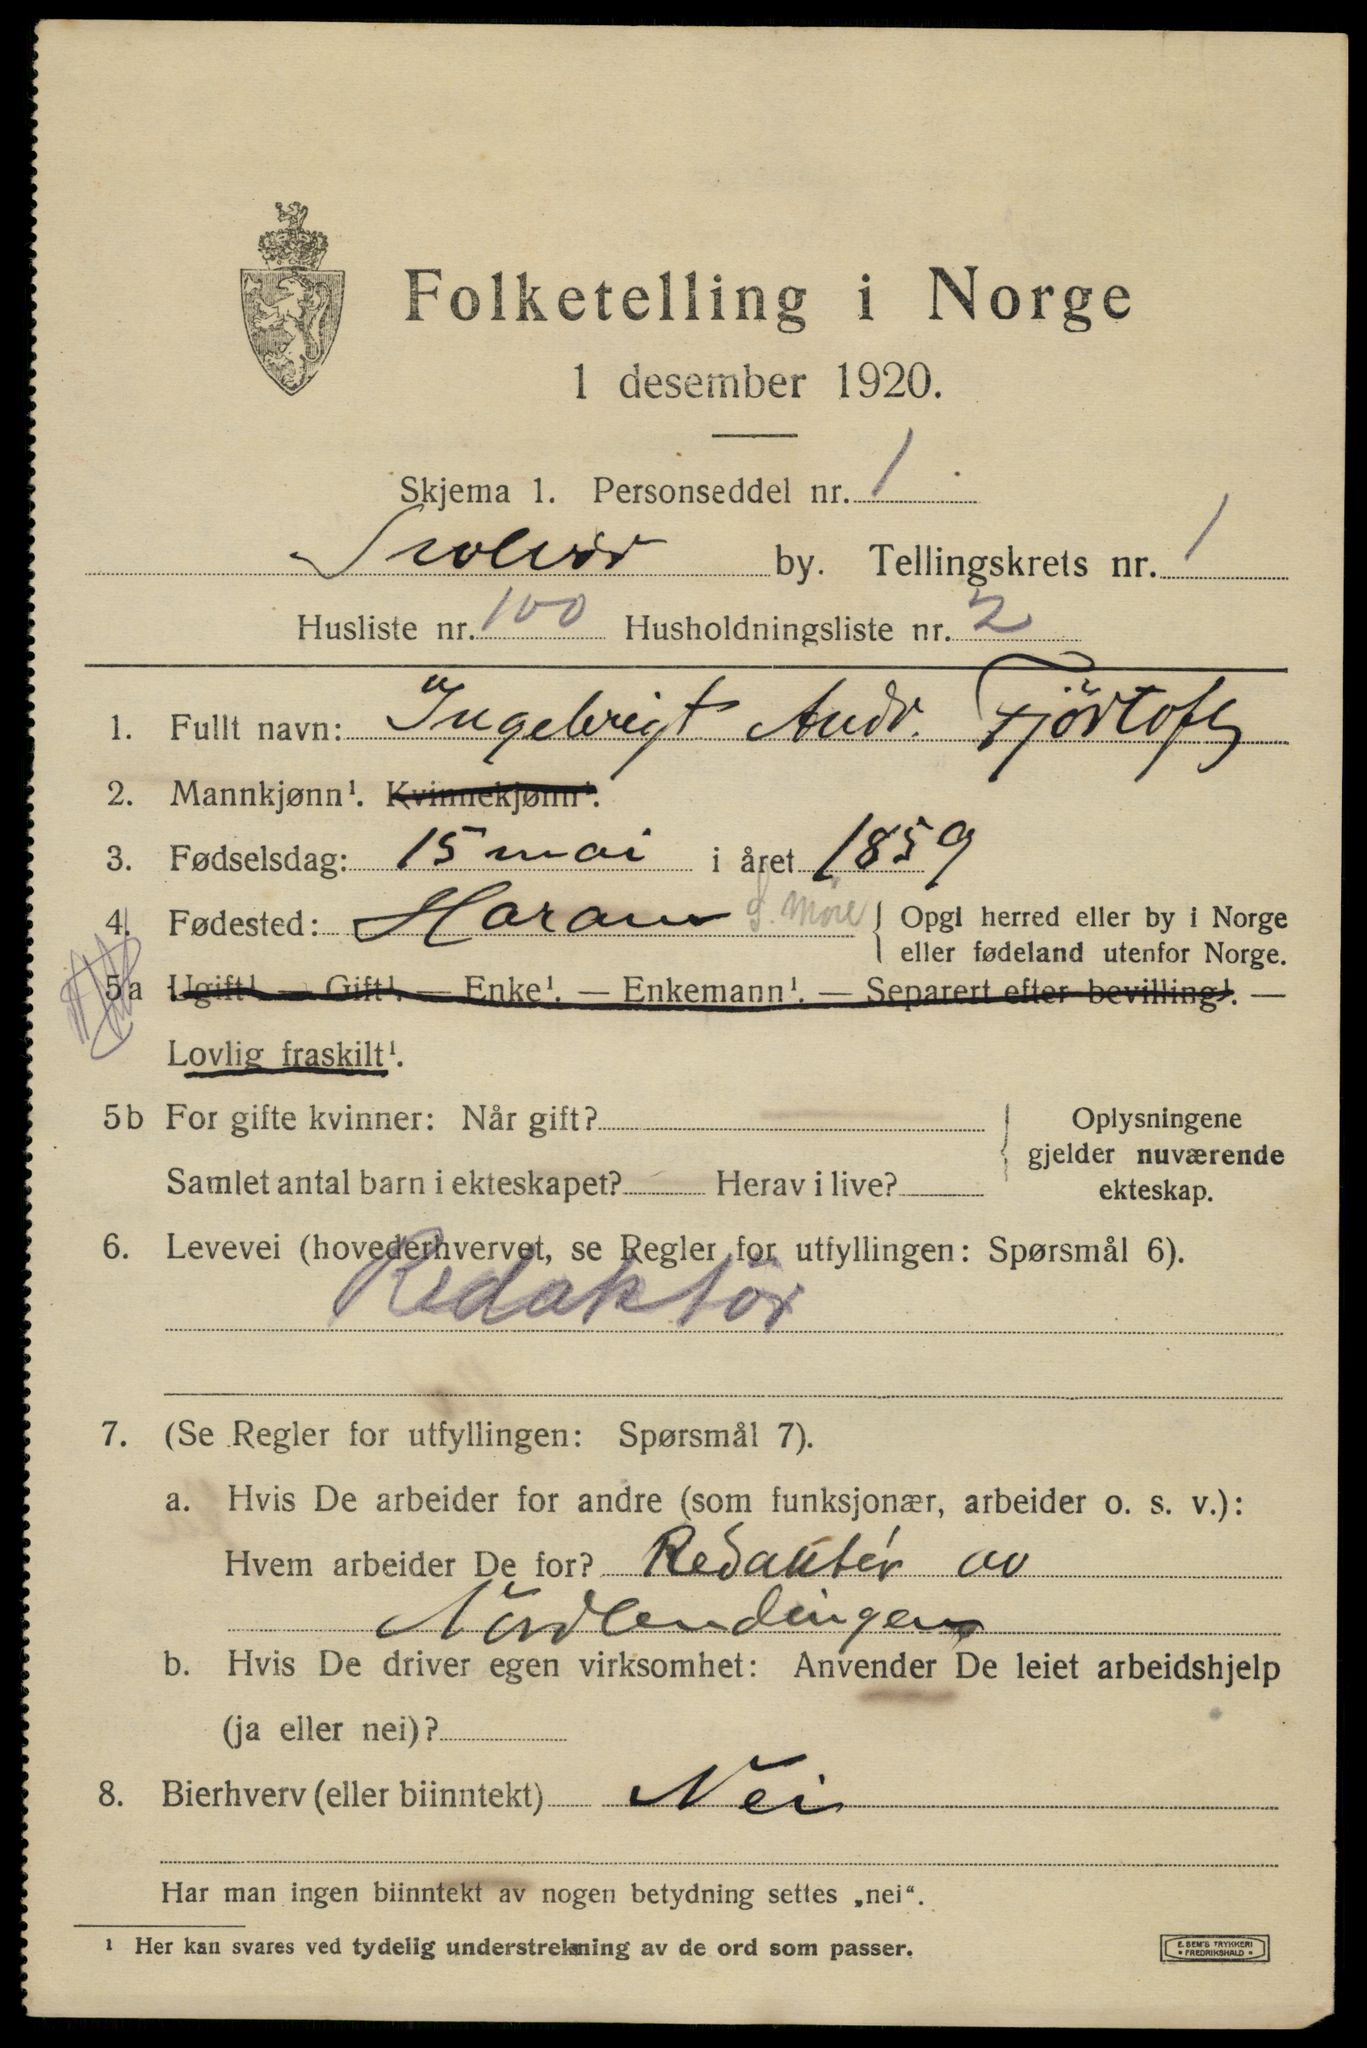 Folketelling i Norge
1 desember 1920.
Skjema 1. Personseddel nr. 1
Svolvær by. Tellingskrets nr. 1
Husliste nr. 100 Husholdningsliste nr. 2
1. Fullt navn: Ingebrigt Andr. Fjörtoft
2. Mannkjønn¹. Kvinnekjønn¹.
3. Fødselsdag: 15 mai i året 1859
4. Fødested: Haram S. Möre { Opgi herred eller by i Norge
eller fødeland utenfor Norge.
5a Ugift¹. — Gift¹. — Enke¹. — Enkemann¹. — Separert efter bevilling¹. —
Lovlig fraskilt¹.
5b For gifte kvinner: Når gift? { Oplysningene
gjelder nuværende
Samlet antal barn i ekteskapet? Herav i live? ekteskap.
6. Levevei (hovederhvervet, se Regler for utfyllingen: Spørsmål 6).
Redaktör
7. (Se Regler for utfyllingen: Spørsmål 7).
a. Hvis De arbeider for andre (som funksjonær, arbeider o. s. v.):
Hvem arbeider De for? Redaktör av
Nordlendingen
b. Hvis De driver egen virksomhet: Anvender De leiet arbeidshjelp
(ja eller nei)?
8. Bierhverv (eller biinntekt) Nei
Har man ingen biinntekt av nogen betydning settes „nei“.
¹ Her kan svares ved tydelig understrekning av de ord som passer.
E. SEM'S TRYKKERI
FREDRIKSHALD